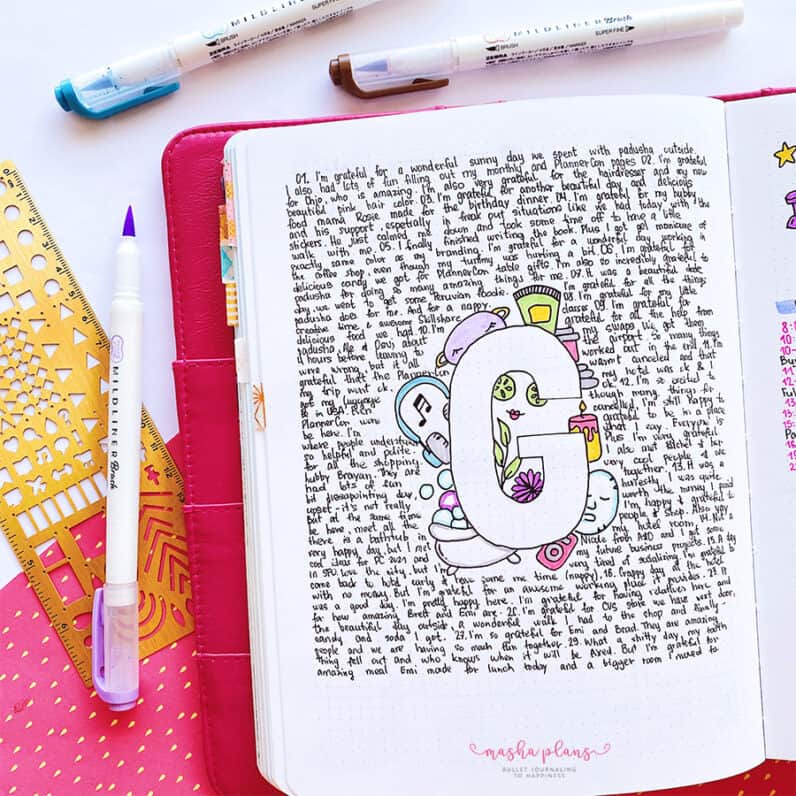 MILDLINER Brush
BRUSH
SUPER FINE
MILDLINER Brush
BRUSH
SUPER FINE
MILDLINER Brush
01. I'm grateful for a wonderful sunny day we spent with padusha outside.
I also had lots of fun filling out my monthly and PlannerCon pages 02. I'm grateful
for Chio, who is amazing. I'm also very grateful for the hairdresser and my new
beautiful pink hair color. 03. I'm grateful for another beautiful day and delicious
food mama Rosie made for the birthday dinner. 04. I'm grateful for my hubby
and his support, especially in freak out situations like we had today with the
stickers. He just calmed me down and took some time off to have a little
walk with me. 05. I finally finished writing the book. Plus I got get manicure of
exactly same color as my branding. I'm grateful for a wonderful day working in
the coffee shop, even though my tummy was hurting a bit. 06. I'm grateful for
delicious candy we got for PlannerCon table gifts. I'm also so incredibly grateful to
padusha for doing so many amazing things for me. 07. It was a beautiful date
day, we went to get some Peruvian foodie. I'm grateful for all the things
padusha does for me. And for a nappy. 08. I'm grateful for my little
creative time & awesome Skillshare classes 09 I'm grateful for
delicious food we had. 10. I'm grateful for all the help from
padusha, like 4 days about my swaps. We got them
4 hours before leaving to the airport. So many things
were wrong, but it all worked out in the end. 11. I'm
grateful that the PlannerCon wasn't canceled and that
my trip went ok. my hotel was ok & I
got my luggage ok. 12. I'm so excited to
be in USA. Even though many things for
PlannerCon were cancelled, I'm still happy to
be here. I'm grateful to be in a place
where people understand that say. Everyone is
so helpful and polite. Plus I'm very grateful
for all the shopping. I also met Rachel & her
hubby Brayan. They are very cool people & we
had lots of fun together. 13. It was a
bit disappointing day, honestly. I was quite
upset - it's not really worth the money I paid
But at the same time I'm happy & grateful to
be here, meet all the people & shop. Also yay
there is a bathtub in my hotel room. 14. Not a
very happy day, but I met Nicole from A2O and I got some
cool ideas for PC 2021 and my future business projects. 15. A day
in SFO love the city, but I'm very tired of socializing. I'm grateful to
come back to hotel early & have some me time (nappy). 16. Crappy day at the hotel
with no money. But I'm grateful for an awesome working place it provides. 23. It
was a good day. I'm pretty happy here. I'm grateful for having relatives here and
for how amazing Brett and Emi are. 26. I'm grateful for CVS store we have next door,
the beautiful day outside, a wonderful walk I had to the shop and finally -
candy and soda I got. 27. I'm so grateful for Emi and Brad. They are amazing
people and we are having so much fun together. 29. What a shitty day my tooth
thing fell out and who knows when it will be fixed. But I'm grateful for
amazing meal Emi made for lunch today and a bigger room I moved to
G
masha plans
BULLET JOURNALING
TO HAPPINESS